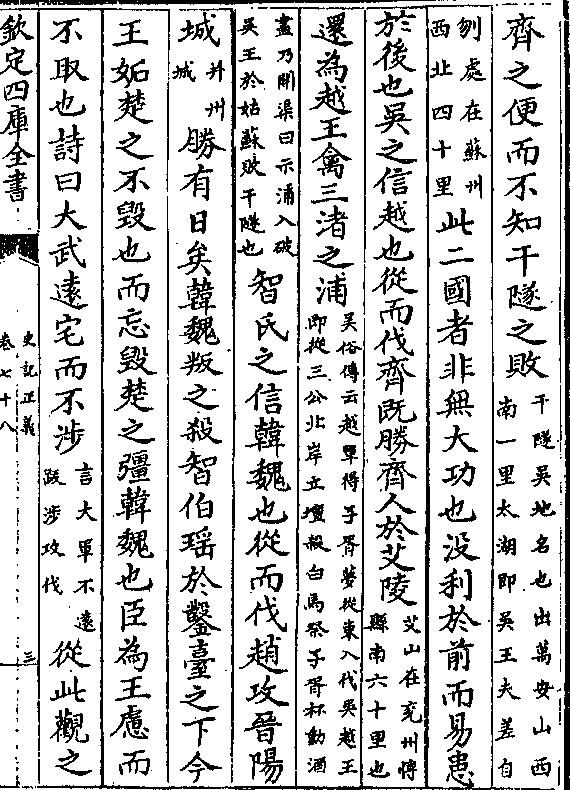 齊之便而不知干隧之敗干隧吳地名也出萬安山西南一里太湖即吳王夫差自
刎處在蘇州西北四十里此二國者非無大功也沒利於前而易患
於後也吳之信越也從而伐齊既勝齊人於艾陵艾山在兗州愽縣南六十里也
還為越王禽三渚之浦吳俗傳云越軍得子胥夢從東入伐吳越王即從三公北岸立壇殺白馬祭子胥杯動酒
盡乃開渠曰示浦入破吳王於姑蘇敗干隧也智氏之信韓魏也從而伐趙攻晉陽
城并州城勝有日矣韓魏叛之殺智伯瑤於鑿臺之下今
王妬楚之不毀也而忘毀楚之彊韓魏也臣為王慮而
不取也詩曰大武逺宅而不涉言大軍不逺跋涉攻伐從此觀之
欽定四庫全書
史記正義
卷七十八
三